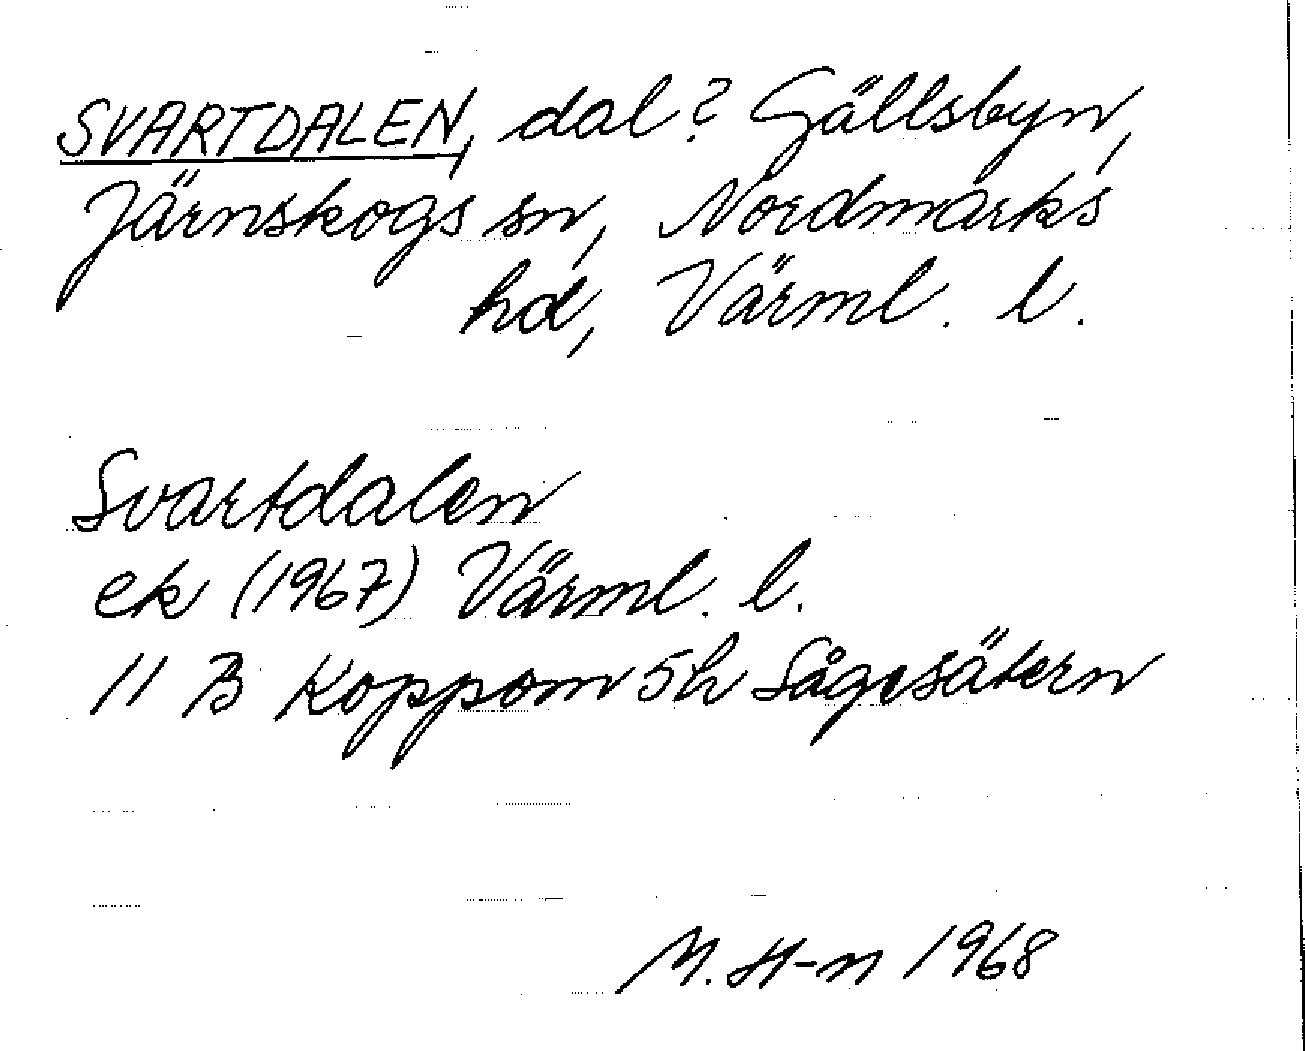 SVARTDALEN, dal? Gällsbyn,
Järnskogs sn, Nordmarks
hd, Värml. l.
Svartdalen
ek (1967) Värml. l.
11 B Koppom 5h Sågesätern
M. H-n 1968